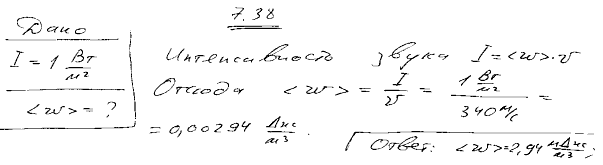 7.38
Дано
I = 1 Вт/м²
<w> = ?
Интенсивность звука I = <w>·v
Отсюда <w> = I/v = 1 Вт/м² / 340 м/с =
= 0,00294 Дж/м³.
Ответ: <w> = 2,94 мДж/м³;